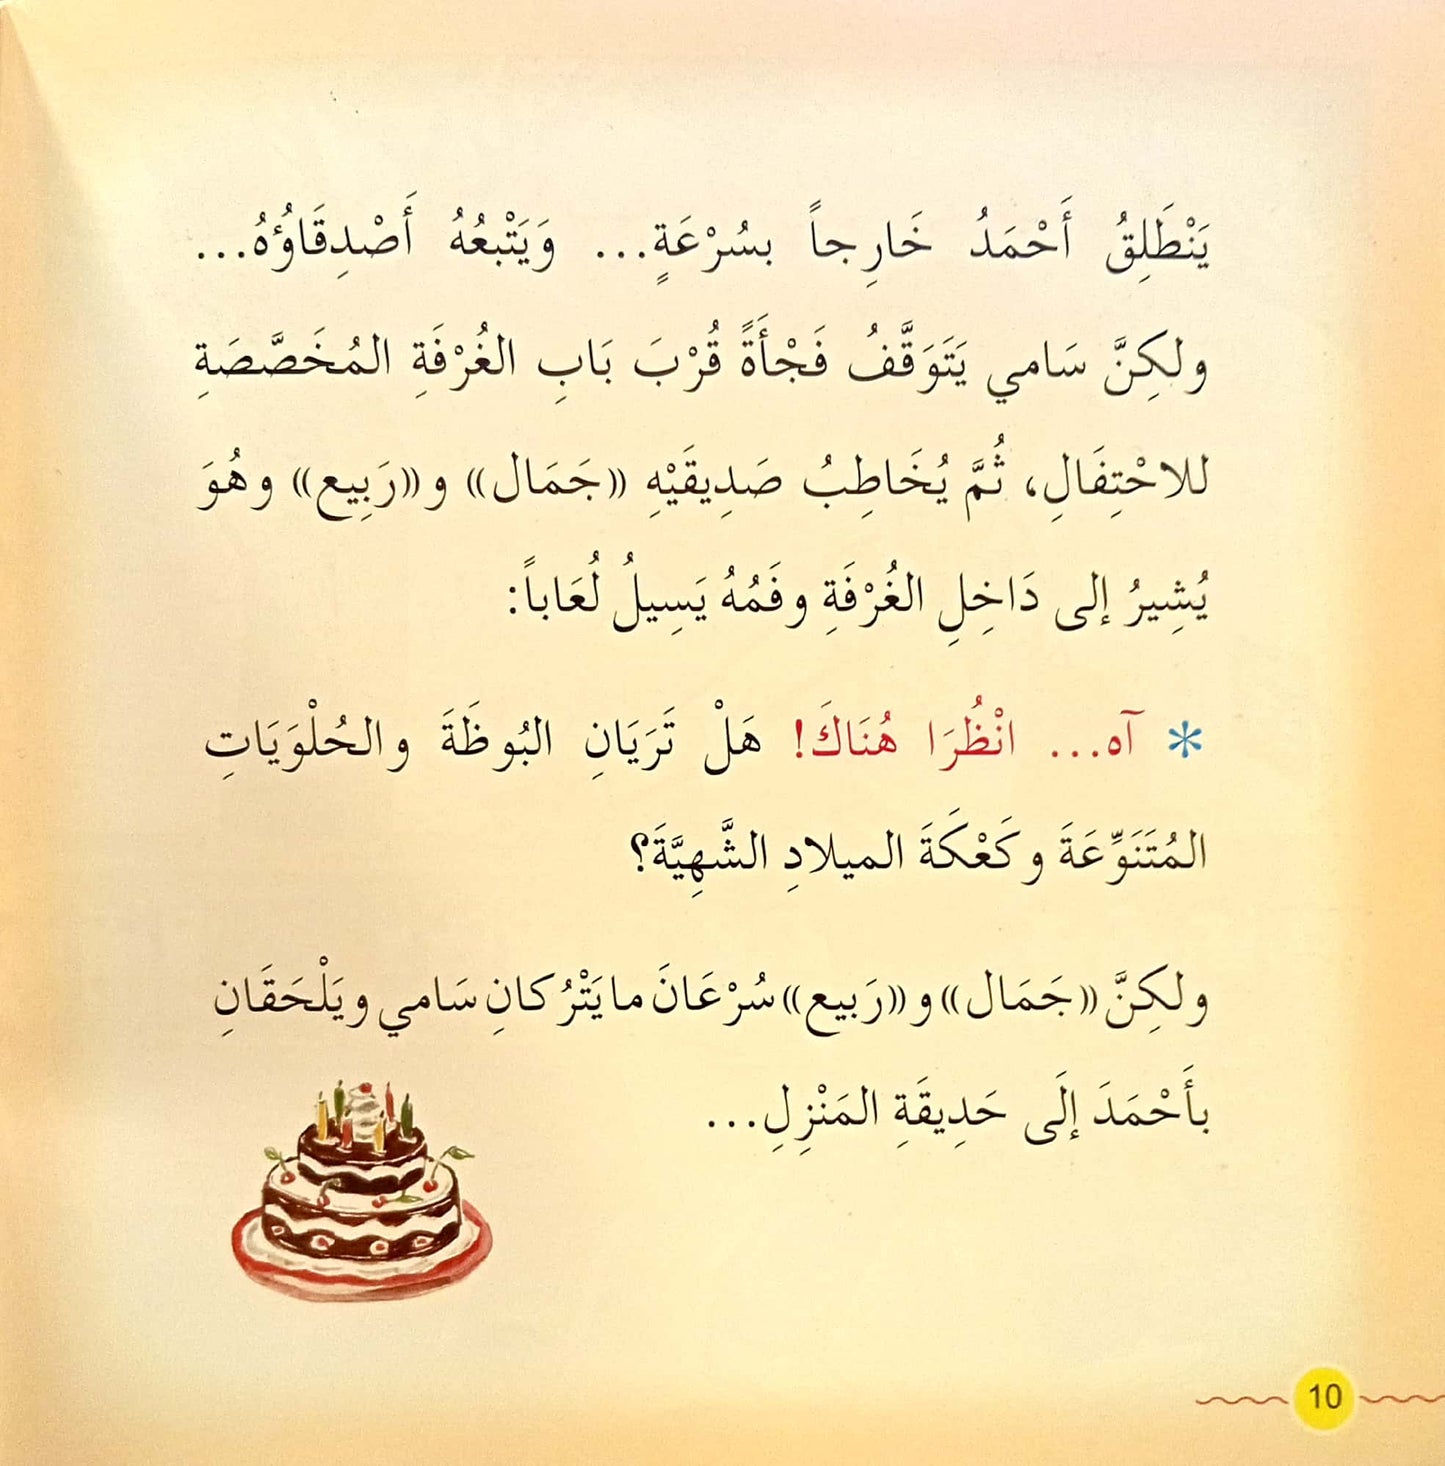 يَنْطَلِقُ أَحْمَدُ خَارِجاً بسُرْعَةٍ... وَيَتْبعُهُ أَصْدِقَاؤُهُ...
ولكِنَّ سَامي يَتَوَقَّفُ فَجْأَةً قُرْبَ بَابِ الغُرْفَةِ المُخَصَّصَةِ
للاحْتِفَالِ، ثُمَّ يُخَاطِبُ صَدِيقَيْهِ «جَمَال» و«رَبِيع» وهُوَ
يُشِيرُ إلى دَاخِلِ الغُرْفَةِ وفَمُهُ يَسِيلُ لُعَاباً:
* آه... انْظُرَا هُنَاكَ! هَلْ تَرَيَانِ البُوظَةَ والحُلْوَيَاتِ
المُتَنَوِّعَةَ وكَعْكَةَ الميلادِ الشَّهِيَّةَ؟
ولكِنَّ «جَمَال» و«رَبيع» سُرْعَانَ ما يَتْرُكانِ سَامي ويَلْحَقَانِ
بأَحْمَدَ إلَى حَدِيقَةِ المَنْزِلِ...
10